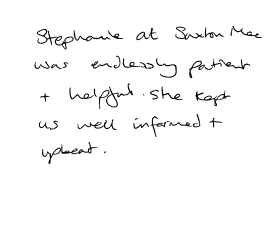 Stephanie at Saxton Mee
was endlessly patient
+ helpful. She kept
us well informed +
upbeat.